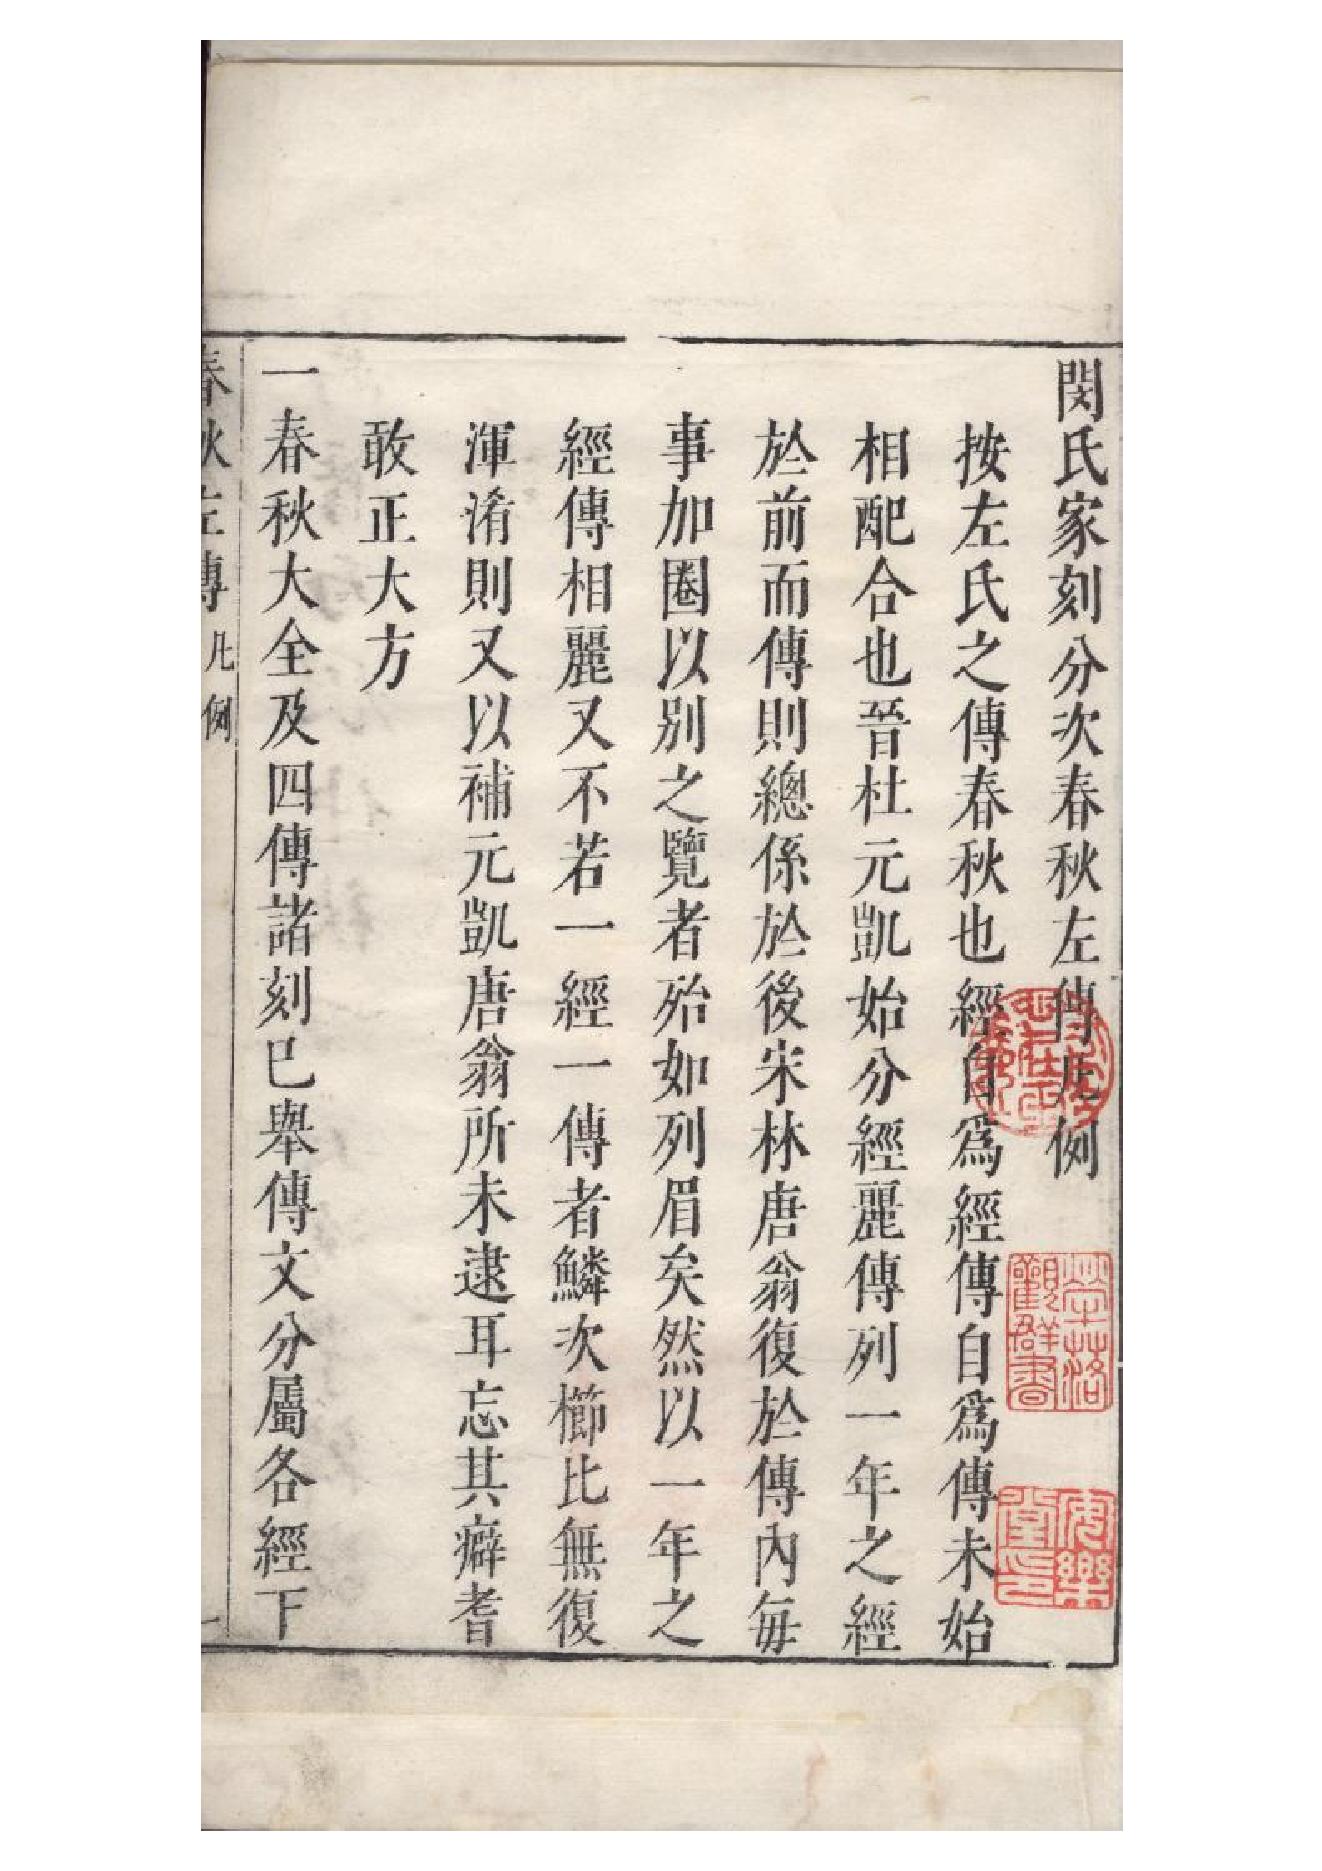 閔氏家刻分次春秋左傳凡例
按左氏之傳春秋也經自爲經傳自爲傳未始
相配合也晉杜元凱始分經麗傳列一年之經
於前而傳則總係於後宋林唐翁復於傳內每
事加圈以別之覽者殆如列眉矣然以一年之
經傳相麗又不若一經一傳者鱗次櫛比無復
渾淆則又以補元凱唐翁所未逮耳忘其癖耆
敢正大方
一春秋大全及四傳諸刻已舉傳文分屬各經下
春秋左傳 凡例 一